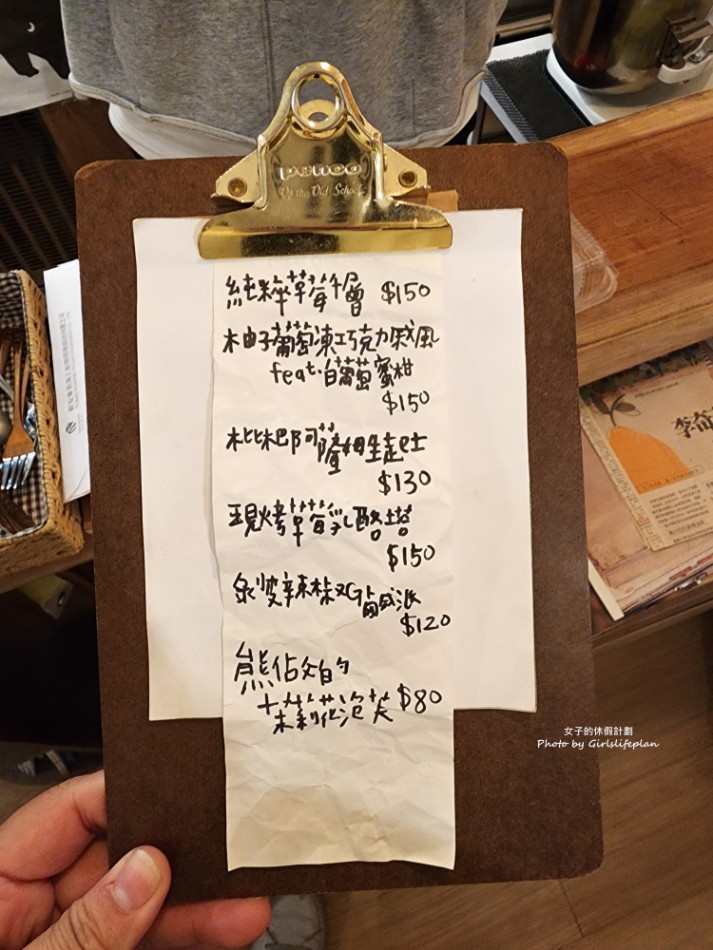 penco
On the Old School
純粹草莓千層 $150
柚子葡萄凍巧克力戚風
feat.白葡萄蜜柑
$150
枇杷阿薩姆生起士
$130
現烤草莓乳酪塔
$150
剝皮辣椒雞鹹派
$120
熊佔領的
茉莉花泡芙 $80
李奇
女子的休假計劃
Photo by Girlslifeplan